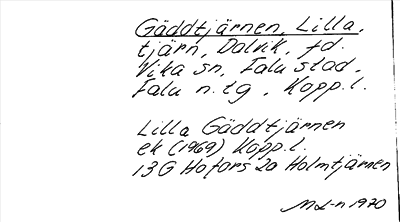 Gäddtjärnen, Lilla,
tjärn, Dalvik, fd.
Vika sn, Falu stad,
Falu n. tg, Kopp. l.
Lilla Gäddtjärnen
ek (1969) Kopp. l.
13G Hofors 2a Holmtjärnen
ML-n 1970